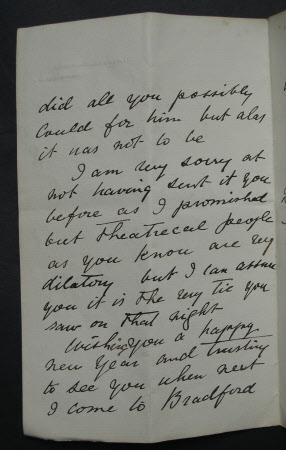 did all you possibly
could for him but alas
it was not to be
I am very sorry at
not having sent it you
before as I promised
but theatrecal people
as you know are very
dilatory but I can assure
you it is the very tie you
saw on that night
Wishing you a happy
new Year and trusting
to see you when next
I come to Bradford